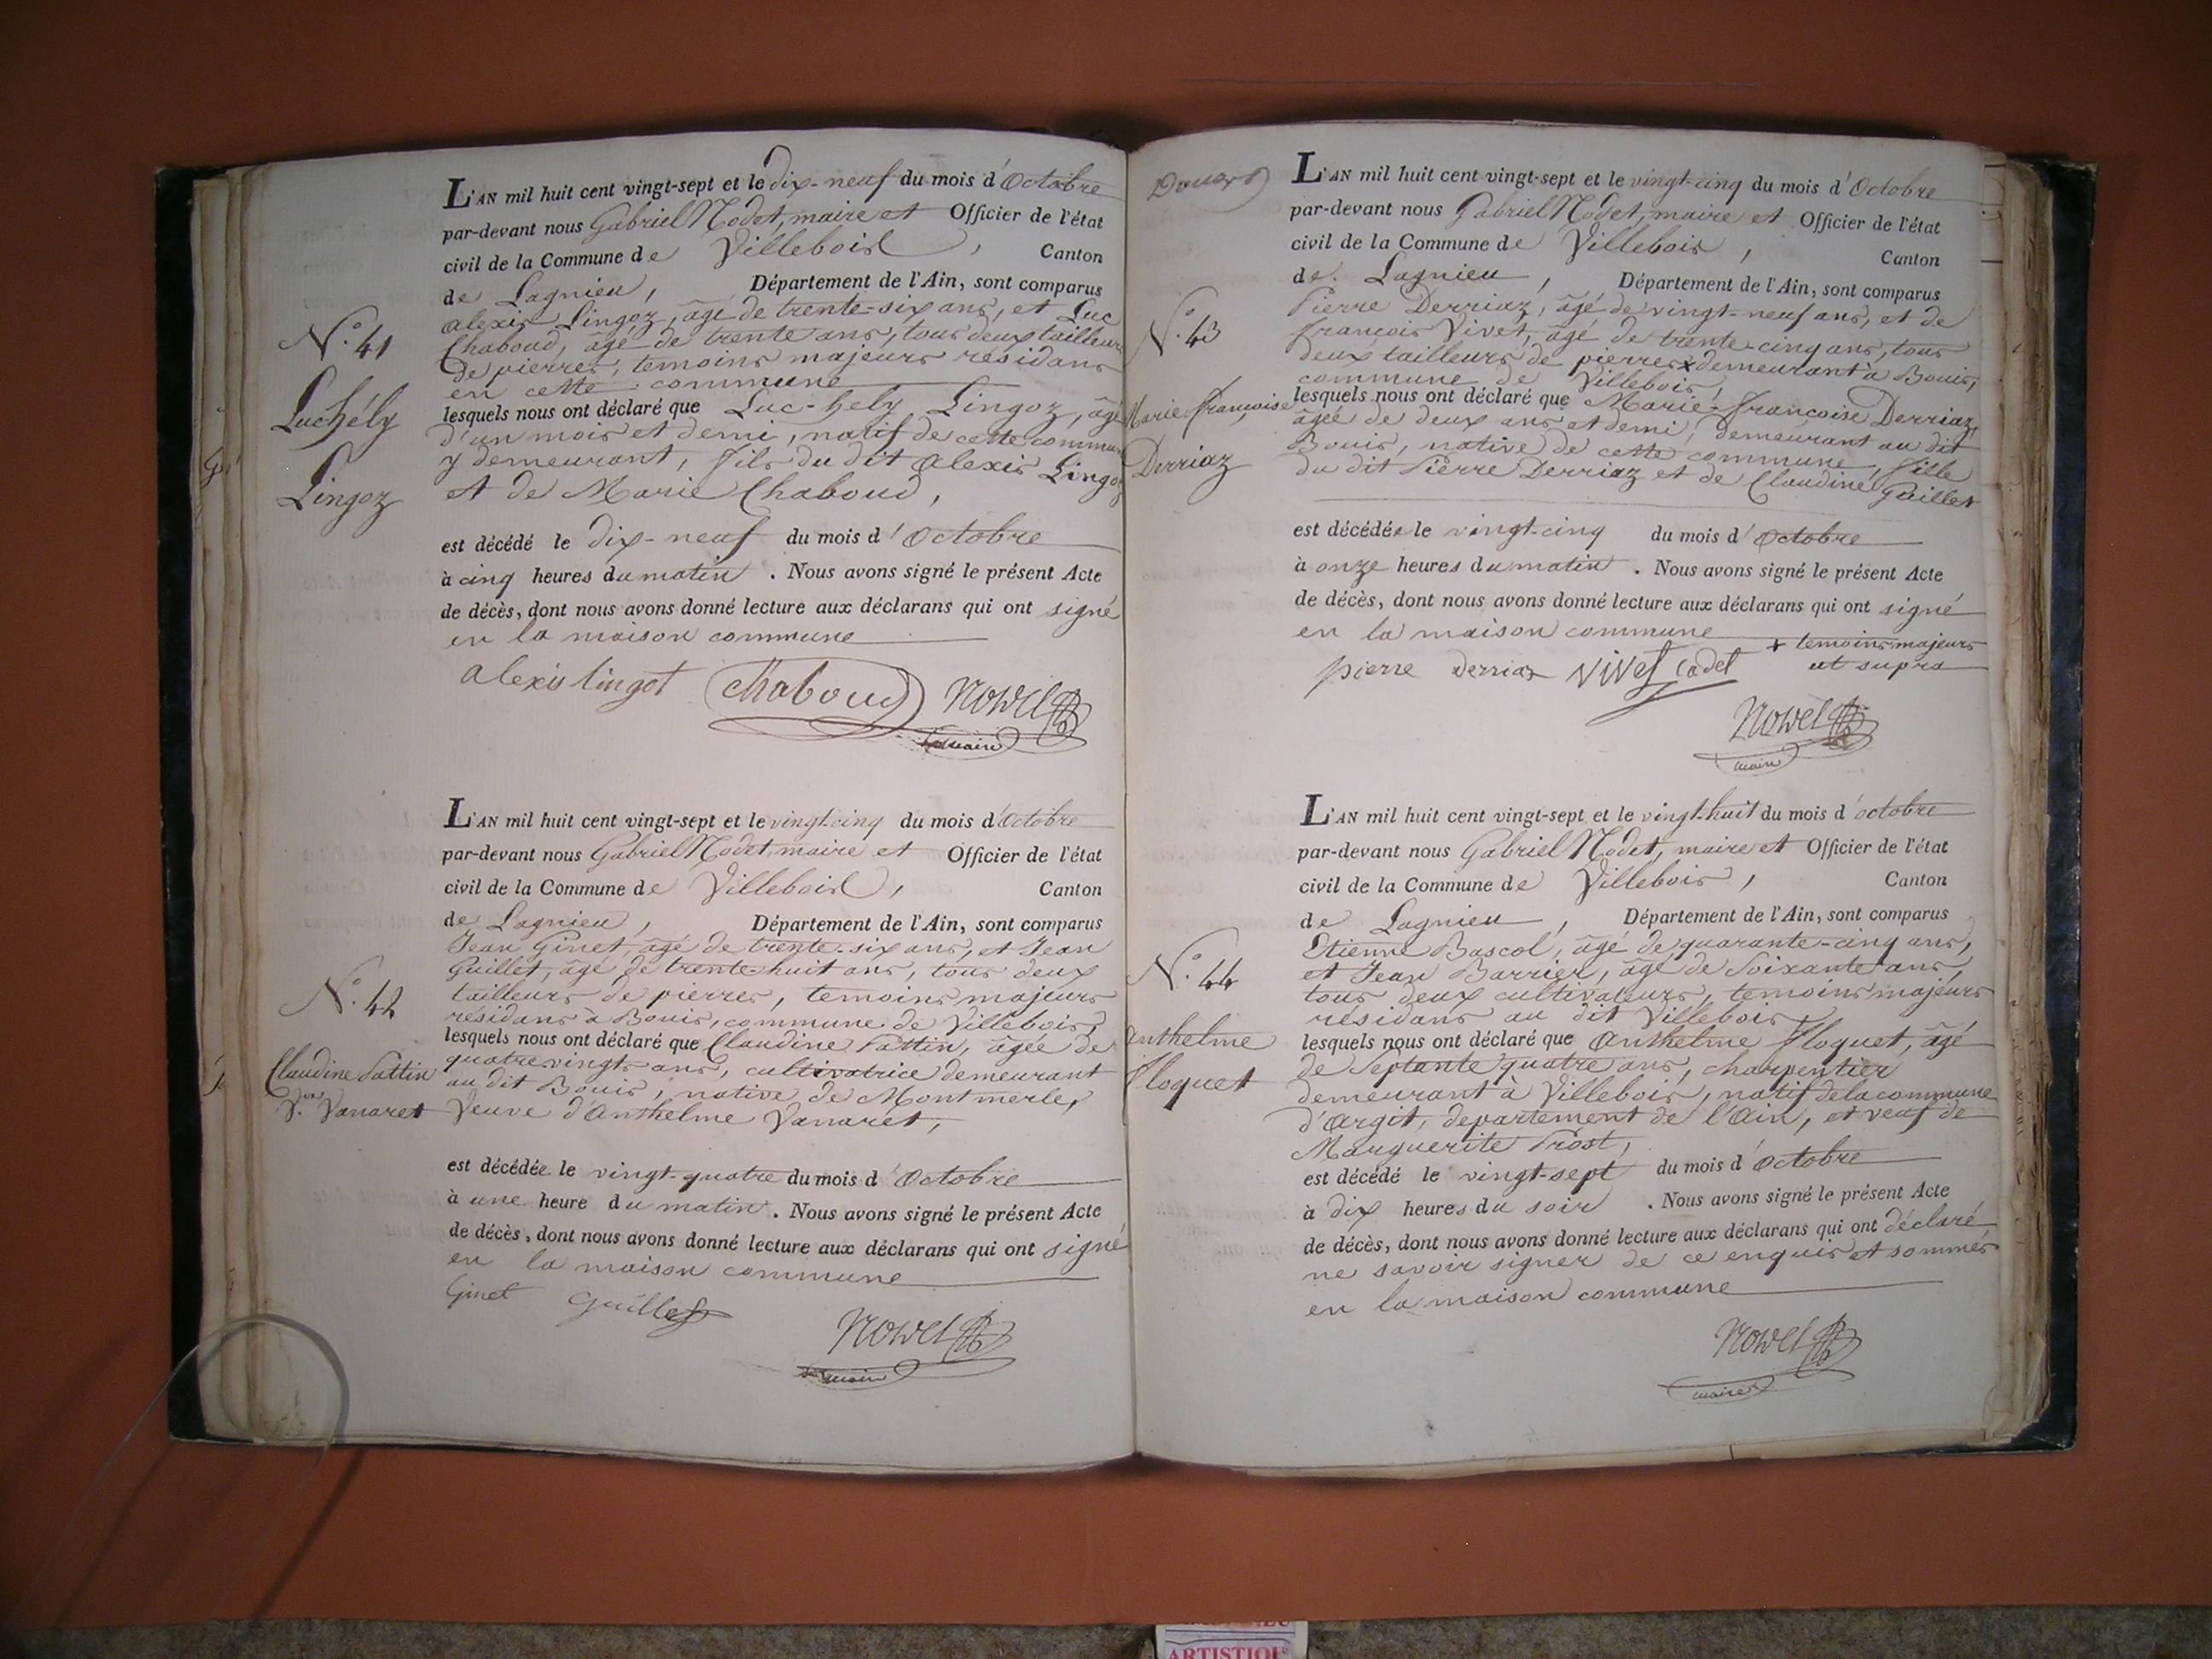 L'AN mil huit cent vingt-sept et le dix-neuf du mois d'Octobre
par-devant nous Gabriel Nodet, maire et Officier de l'état
civil de la Commune de Villebois, Canton
de Lagnieu, Département de l'Ain, sont comparus
alexis Lingoz, âgé de trente-six ans, et Luc
Chaboud, âgé de trente ans, tous deux tailleurs
de pierres, temoins majeurs résidans
en cette commune
lesquels nous ont déclaré que Luc-hely Lingoz, âgé
d'un mois et demi, natif de cette commune
y demeurant, fils du dit alexis Lingoz
et de Marie Chaboud,
est décédé le dix-neuf du mois d'Octobre
à cinq heures du matin. Nous avons signé le présent Acte
de décès, dont nous avons donné lecture aux déclarans qui ont signé
en la maison commune
alexis lingot Chaboud
maire
N.° 41
Luc hély
Lingoz
L'AN mil huit cent vingt-sept et le vingt-cinq du mois d'Octobre
par-devant nous Gabriel Nodet, maire et Officier de l'état
civil de la Commune de Villebois, Canton
de Lagnieu, Département de l'Ain, sont comparus
Jean Ginet, âgé de trente-six ans, et Jean
Guillet, âgé de trente-huit ans, tous deux
tailleurs de pierres, temoins majeurs
résidans à Bouis, commune de Villebois,
lesquels nous ont déclaré que Claudine Pattin, âgée de
quatre-vingts ans, cultivatrice demeurant
au dit Bouis, native de Montmerle,
Veuve d'Anthelme Vanaret,
est décédée le vingt-quatre du mois d'Octobre
à une heure du matin. Nous avons signé le présent Acte
de décès, dont nous avons donné lecture aux déclarans qui ont signé
en la maison commune
Ginet Guillet
maire
N.° 42
Claudine Pattin
V.ve Vanaret
L'AN mil huit cent vingt-sept et le vingt-cinq du mois d'Octobre
par-devant nous Gabriel Nodet, maire et Officier de l'état
civil de la Commune de Villebois, Canton
de Lagnieu, Département de l'Ain, sont comparus
Pierre Derriaz, âgé de vingt-neuf ans, et de
francois Vivet, âgé de trente-cinq ans, tous
deux tailleurs de pierres x demeurant à Bouis,
commune de Villebois,
lesquels nous ont déclaré que Marie-francoise Derriaz,
âgée de deux ans et demi, demeurant au dit
Bouis, native de cette commune, fille
du dit Pierre Derriaz et de Claudine Guillet
est décédée le vingt-cinq du mois d'Octobre
à onze heures du matin. Nous avons signé le présent Acte
de décès, dont nous avons donné lecture aux déclarans qui ont signé
en la maison commune
x temoins majeurs
ut supra
pierre derriaz Vivet Cadet
maire
N.° 43
Marie-françoise
Derriaz
L'AN mil huit cent vingt-sept et le vingt-huit du mois d'octobre
par-devant nous Gabriel Nodet, maire et Officier de l'état
civil de la Commune de Villebois, Canton
de Lagnieu, Département de l'Ain, sont comparus
Etienne Bascol, âgé de quarante-cinq ans,
et Jean Barrier, âgé de Soixante ans,
tous deux cultivateurs, temoins majeurs
résidans au dit Villebois,
lesquels nous ont déclaré que Anthelme Floquet, âgé
de Septante quatre ans, charpentier
demeurant à Villebois, natif de la commune
d'Argit, departement de l'Ain, et veuf de
Marguerite Prost,
est décédé le vingt-sept du mois d'Octobre
à dix heures du soir. Nous avons signé le présent Acte
de décès, dont nous avons donné lecture aux déclarans qui ont déclaré
ne savoir signer de ce enquis et sommés
en la maison commune
maire
N.° 44
anthelme
Floquet
ARTISTIQU